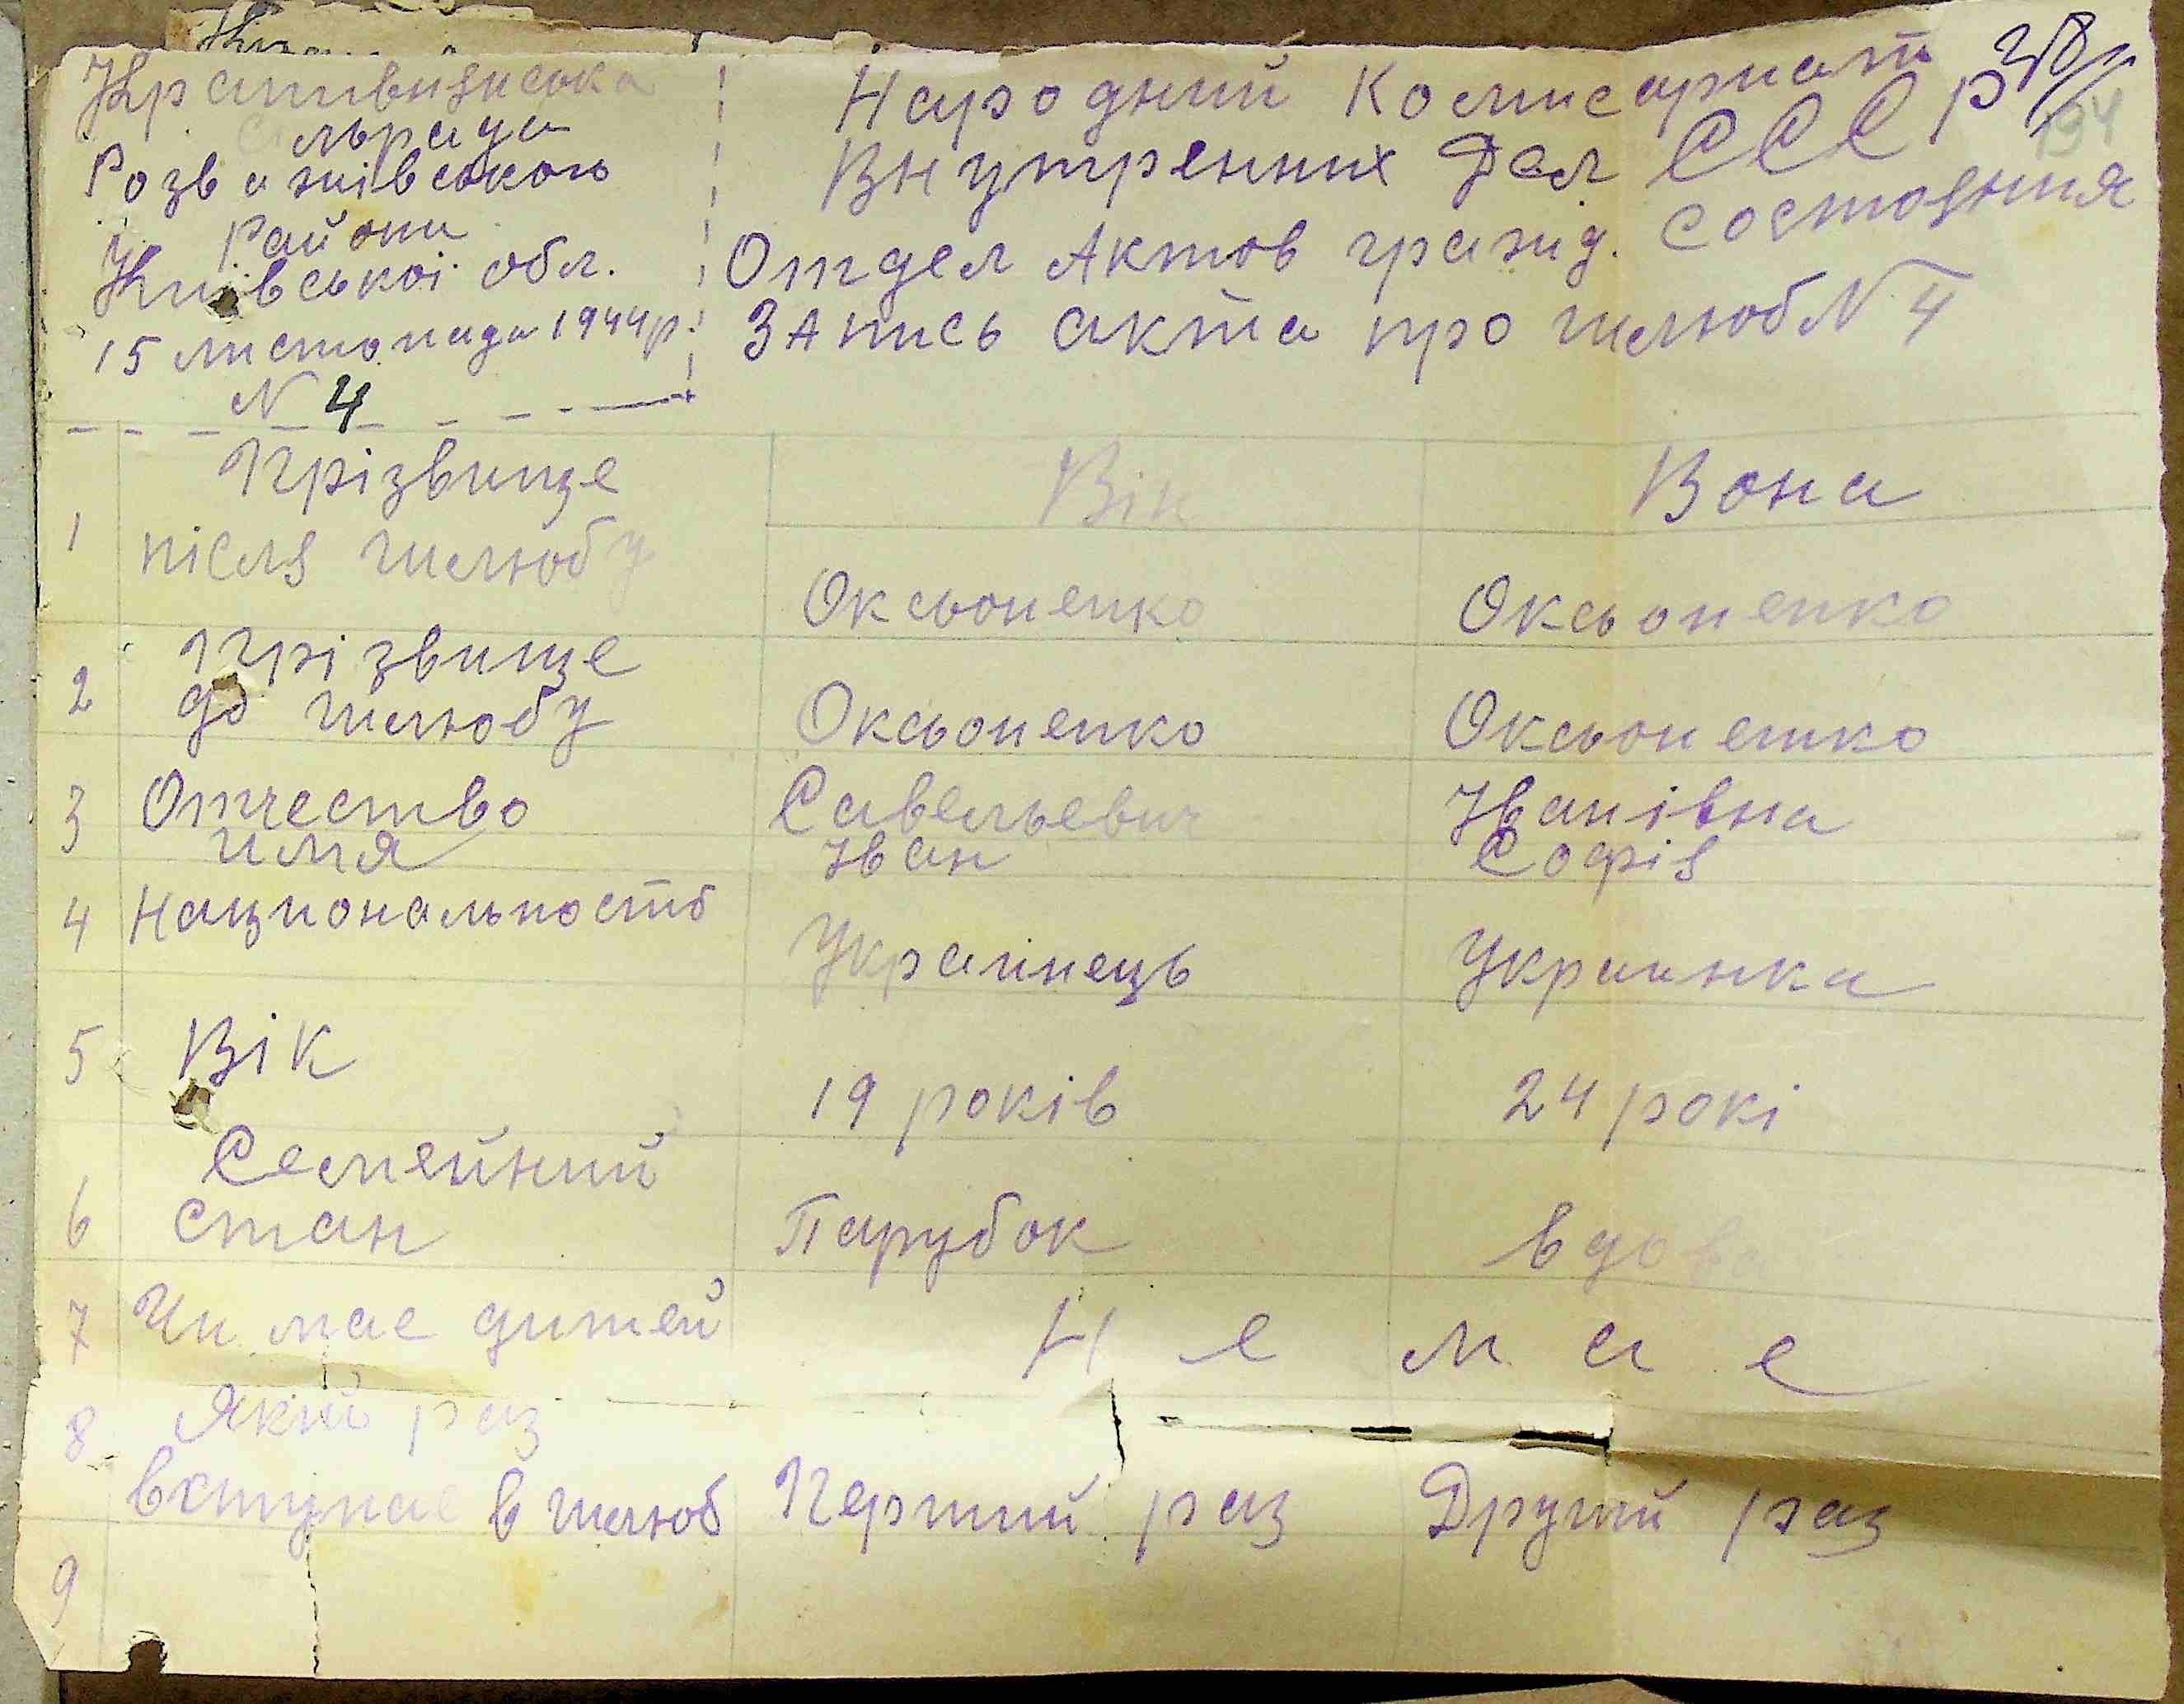 Кративинська
сльрада
Розважівського
Району
Київської обл.
15 листопада 1944р.
N 4
Народний Комисариат
Внутренних Дел СССР
Отдел Актов гражд. Состояния
Запись акта про шлюб N 4
Вік Вона
1 Прізвище
після шлюбу
Оксьоненко Оксьоненко
2 Прізвище
до шлюбу Оксьоненко Оксьоненко
3 Отчество Савельевич Іванівна
имя Іван Софія
4 Национальность
Украинець Украинка
5 Вік
19 років 24 рокі
Семейний
6 стан Парубок вдова
7 Чи мае дитей Н е м а е
8 Який раз
вступае в шлюб Перший раз Другий раз
9